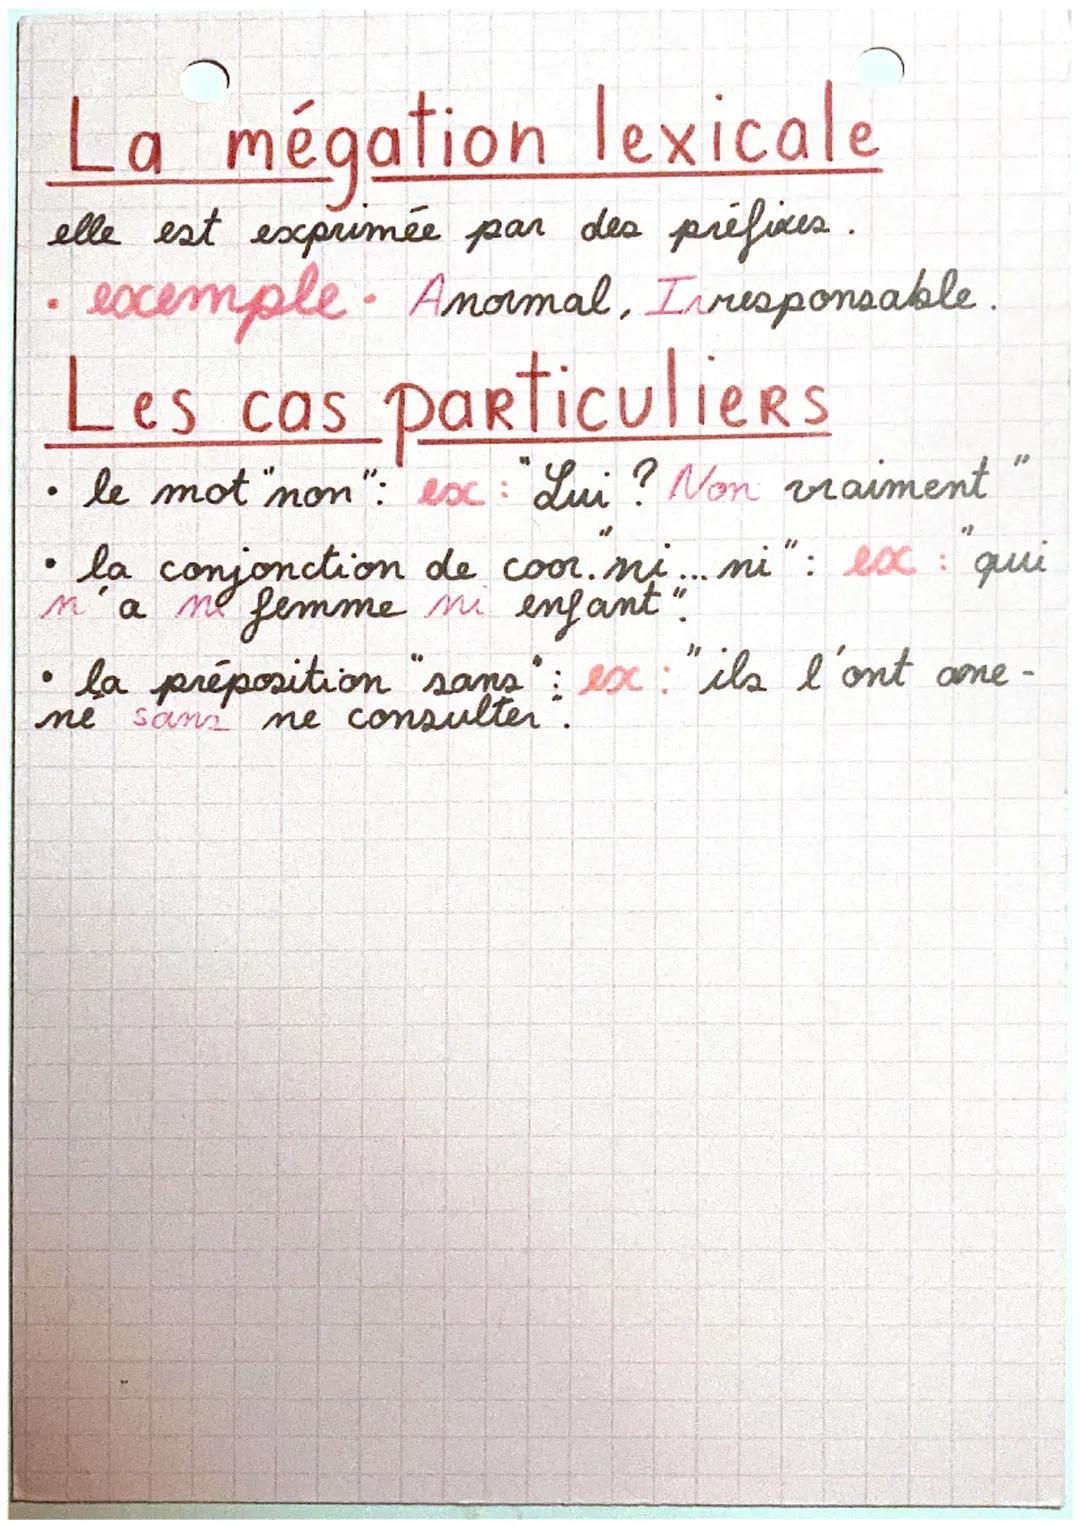 La négation lexicale
elle est exprimée par des préfixes.
• exemple • Anormal, Irresponsable.
Les cas particuliers
• le mot "non": ex : "Lui ? Non vraiment"
• la conjonction de coor. "ni... ni": ex : "qui
n'a ni femme ni enfant".
• la préposition "sans": ex : "ils l'ont ame-
né sans me consulter".